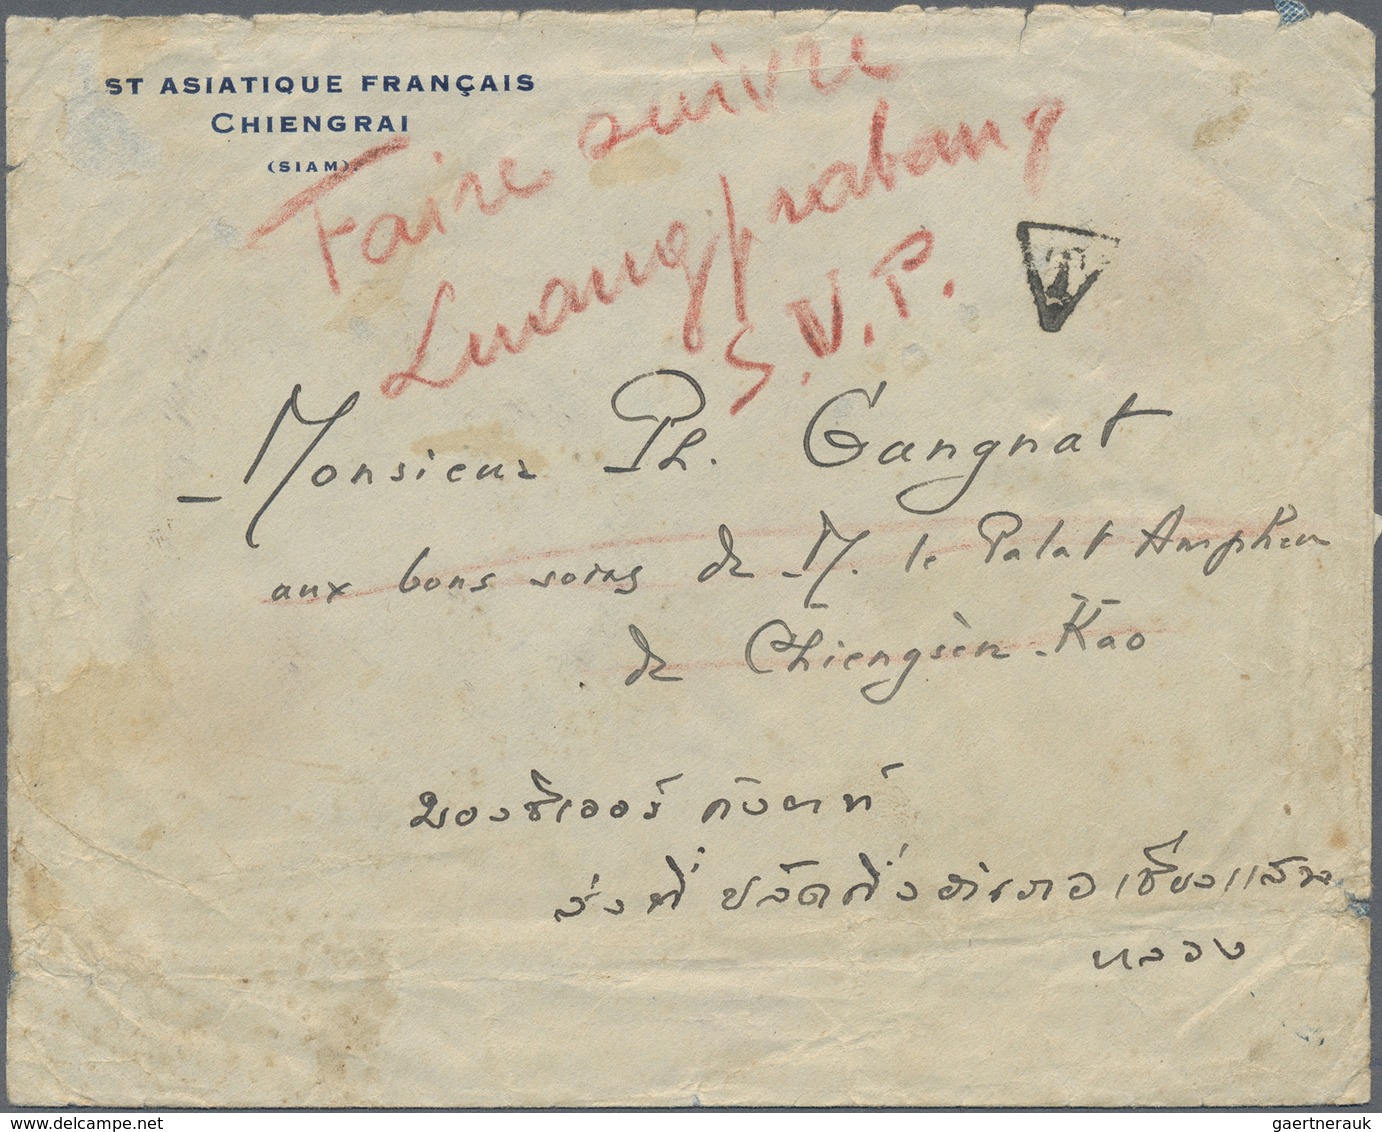 ST ASIATIQUE FRANÇAIS
CHIENGRAI
(SIAM)
Faire suivre
Luang prabang
S.V.P.
T
Monsieur Ph. Gangnat
aux bons soins de M. le Palat Ampheu
de Chiengsèn-Kao
มองซิเออร์ กังนาท์
ส่งที่ ปลัดกิ่งอำเภอเชียงแสน
หลวง
gaertnerauk
www.delcampe.net